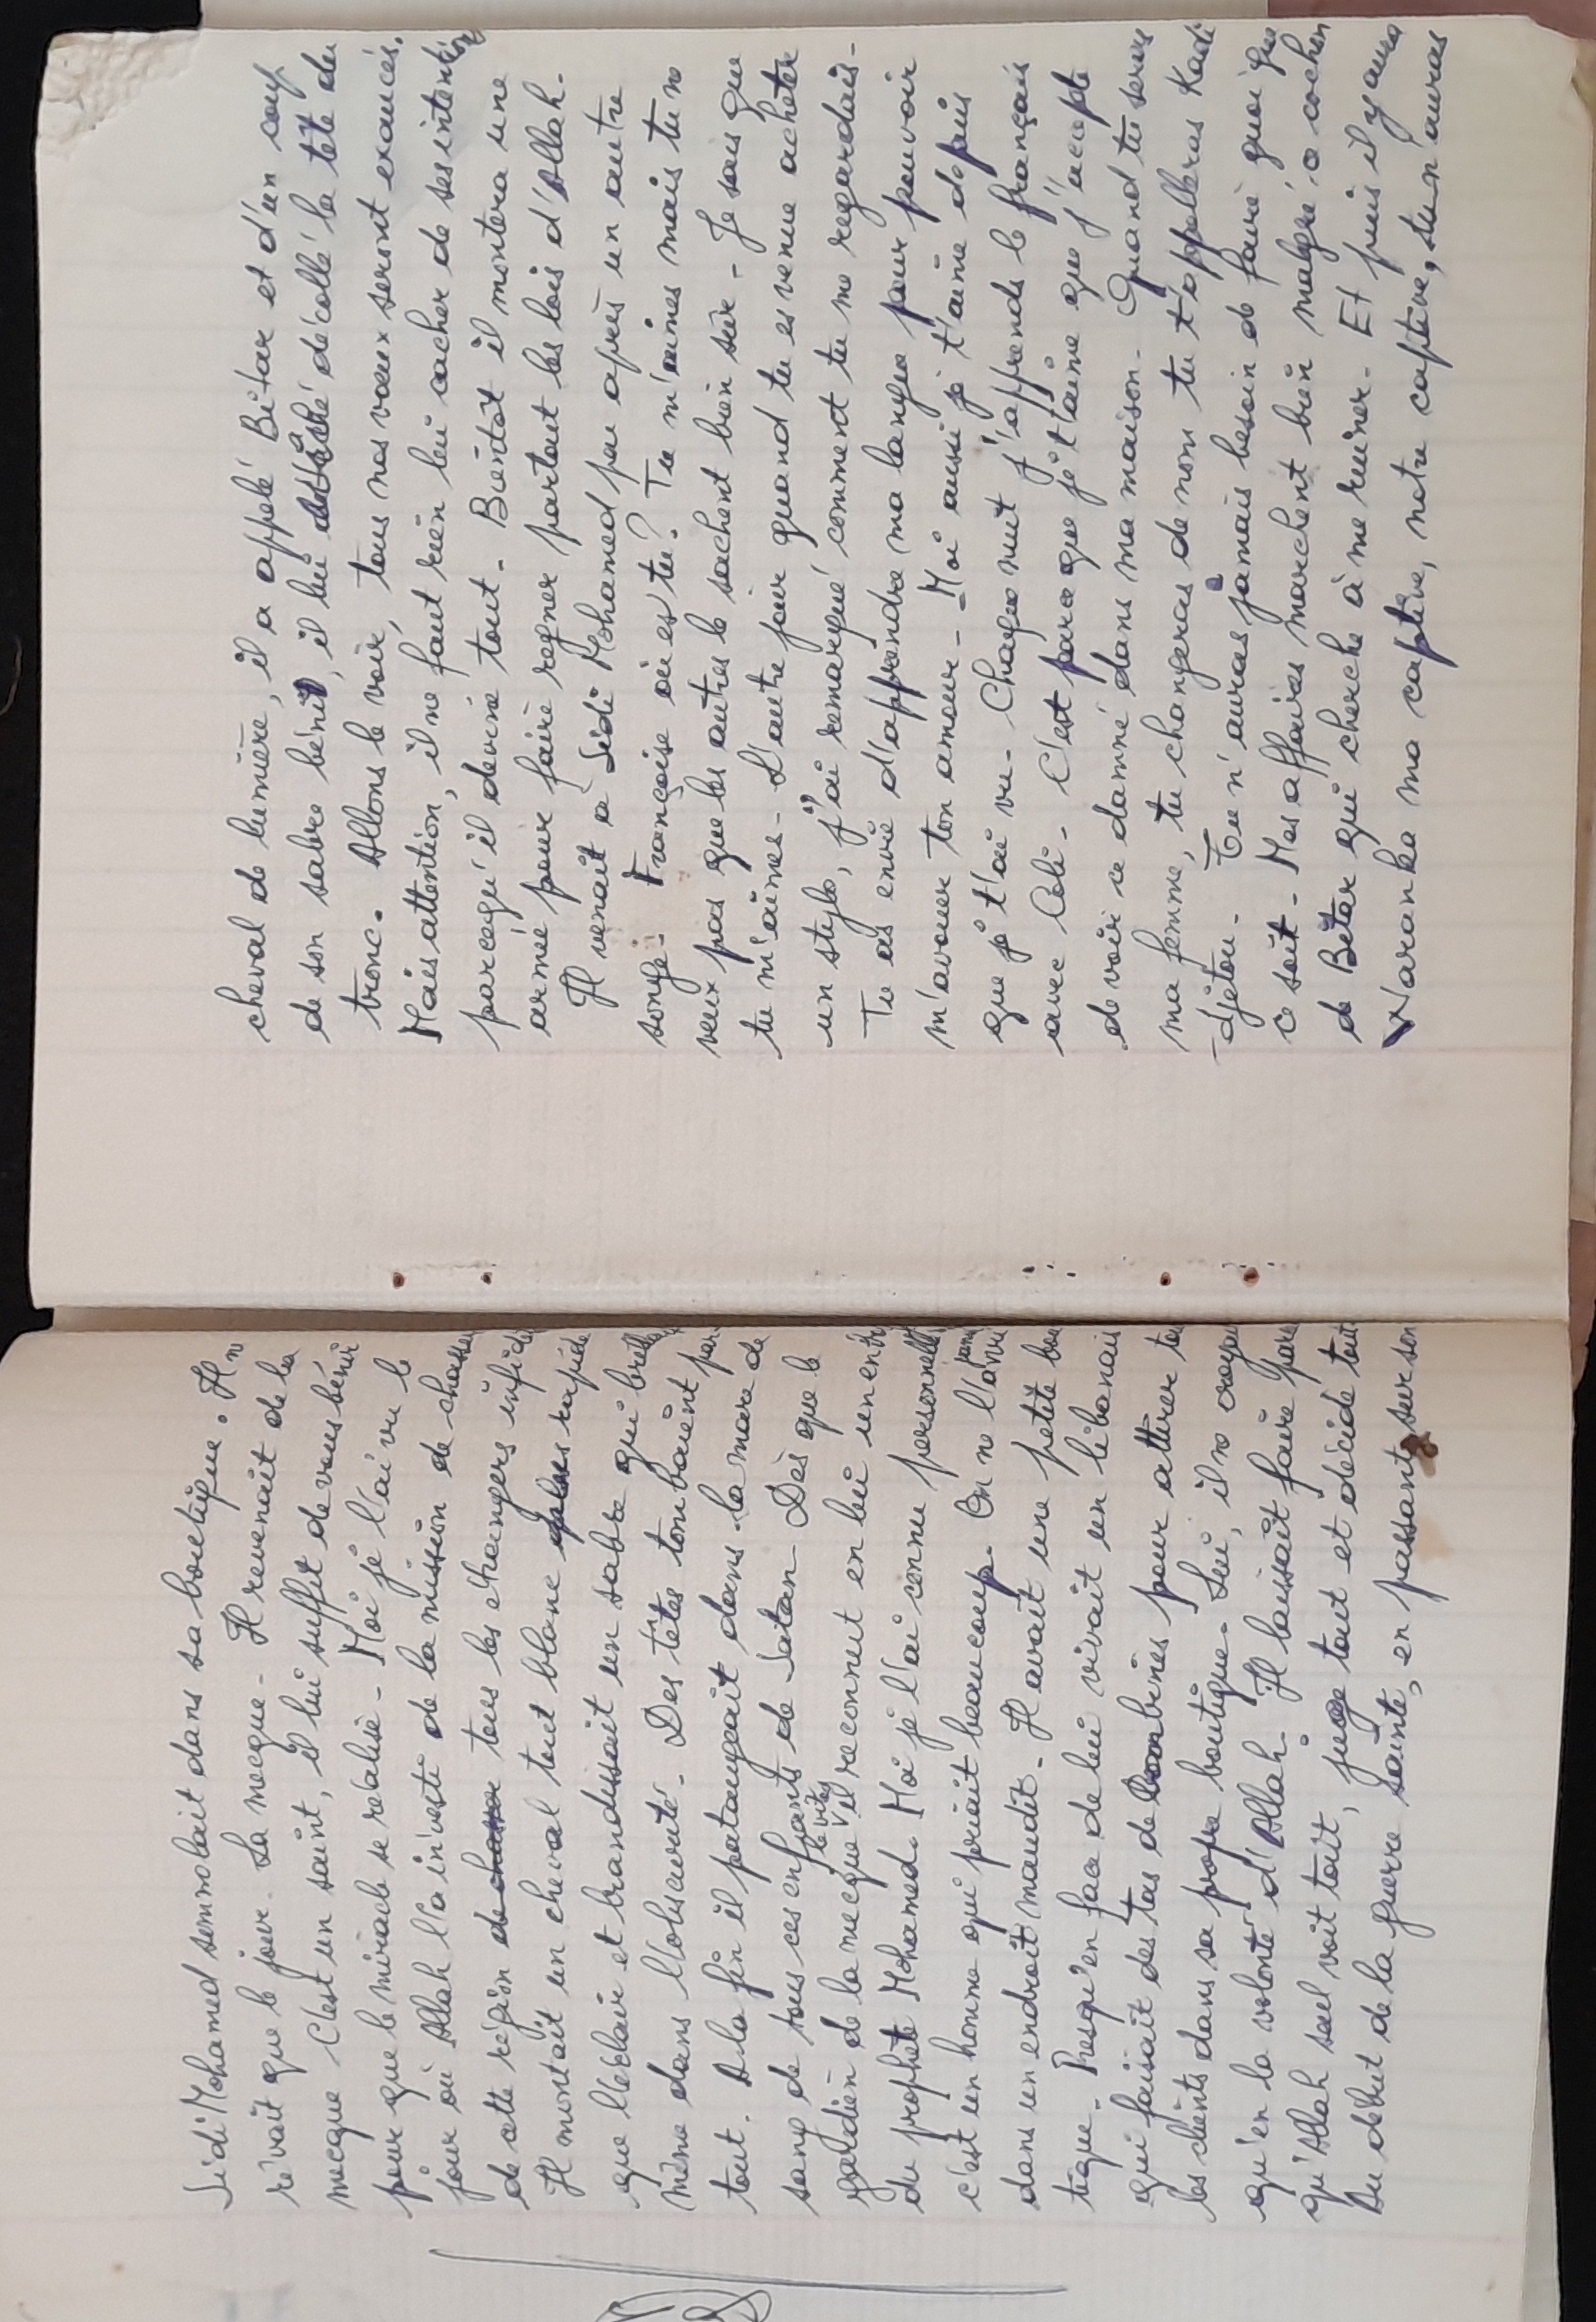 Sidi Mohamed somnolait dans sa boutique. Il ne
rêvait que le jour. La mecque - Il revenait de la
mecque C'est un saint, il lui suffit de vous bénir
pour que le miracle se réalise - Moi je l'ai vu le
jour où Allah l'a investi de la mission de chasser
de cette région de chasser tous les étrangers infidèles
Il montait un cheval tout blanc plus rapide
que l'éclair et brandissait un sabre qui brille
même dans l'obscurité - Des têtes tombaient par-
tout. A la fin il pataugeait dans la mare de
sang de tous ces enfants de Satan - Dès que le
gardien de la mecque le vit, il reconnut en lui un envoyé
du prophète Mohamed. Moi je l'ai connu personnellement
c'est un homme qui priait beaucoup. On ne l'a jamais vu
dans un endroit maudit - Il avait une petite bou
tique - Presqu'en face de lui vivait un libanais
qui faisait des tas de combines pour attirer tous
les clients dans sa propre boutique. Lui, il ne croyait
qu'en la volonté d'Allah. Il laissait faire parce
qu'Allah seul voit tout, juge tout et décide tout
Au début de la guerre sainte, en passant sur son
cheval de lumière, il a appelé Bitar et d'un coup
de son sabre bénit, il lui détaché décollé la tête du
tronc. Allons le voir, tous nos vœux seront exaucés.
Mais attention, il ne faut rien lui cacher de ses intentions
parcequ'il devine tout - Bientôt il montera une
armée pour faire regner partout les lois d'Allah.
Il venait à Sidi Mohamed peu après un autre
songe - Françoise où es tu? Tu m'aimes mais tu ne
veux pas que les autres le sachent bien sûr - Je sais que
tu m'aimes - L'autre jour quand tu es venue acheter
un stylo, j'ai remarqué comment tu me regardais -
Tu as envie d'apprendre ma langue pour pouvoir
m'avouer ton amour - Moi aussi je t'aime depuis
que je t'ai vu - Chaque nuit j'apprends le français
avec Coli - C'est parce que je t'aime que j'accepte
de voir ce damné dans ma maison - Quand tu seras
ma femme, tu changeras de nom tu t'appelleras Kadi
djetou - Tu n'auras jamais besoin de faire quoi que
ce soit - Mes affaires marchent bien malgré ce cochon
de Bitar qui cherche à me ruiner - Et puis il y aura
Naranka ma captive, notre captive, tu n'auras